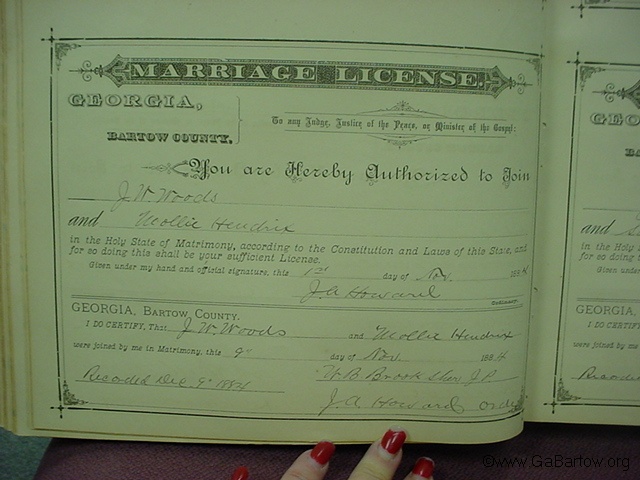 MARRIAGE LICENSE.
GEORGIA,
BARTOW COUNTY.
To any Judge, Justice of the Peace, or Minister of the Gospel:
You are Hereby Authorized to Join
J. W. Woods
and Mollie Hendrix
in the Holy State of Matrimony, according to the Constitution and Laws of this State, and
for so doing this shall be your sufficient License.
Given under my hand and official signature, this 1st day of Nov. 1884
J. A. Howard
ORDINARY.
GEORGIA, BARTOW COUNTY.
I DO CERTIFY, That J. W. Woods and Mollie Hendrix
were joined by me in Matrimony, this 9th day of Nov. 1884
W. B. Brookshire J P
Recorded Dec 9th 1884
J. A. Howard Ord
GEO
BAR
and
in the Holy
for so doing
Given unde
GEORGIA
I DO CE
were joined by
Recorde
©www.GaBartow.org